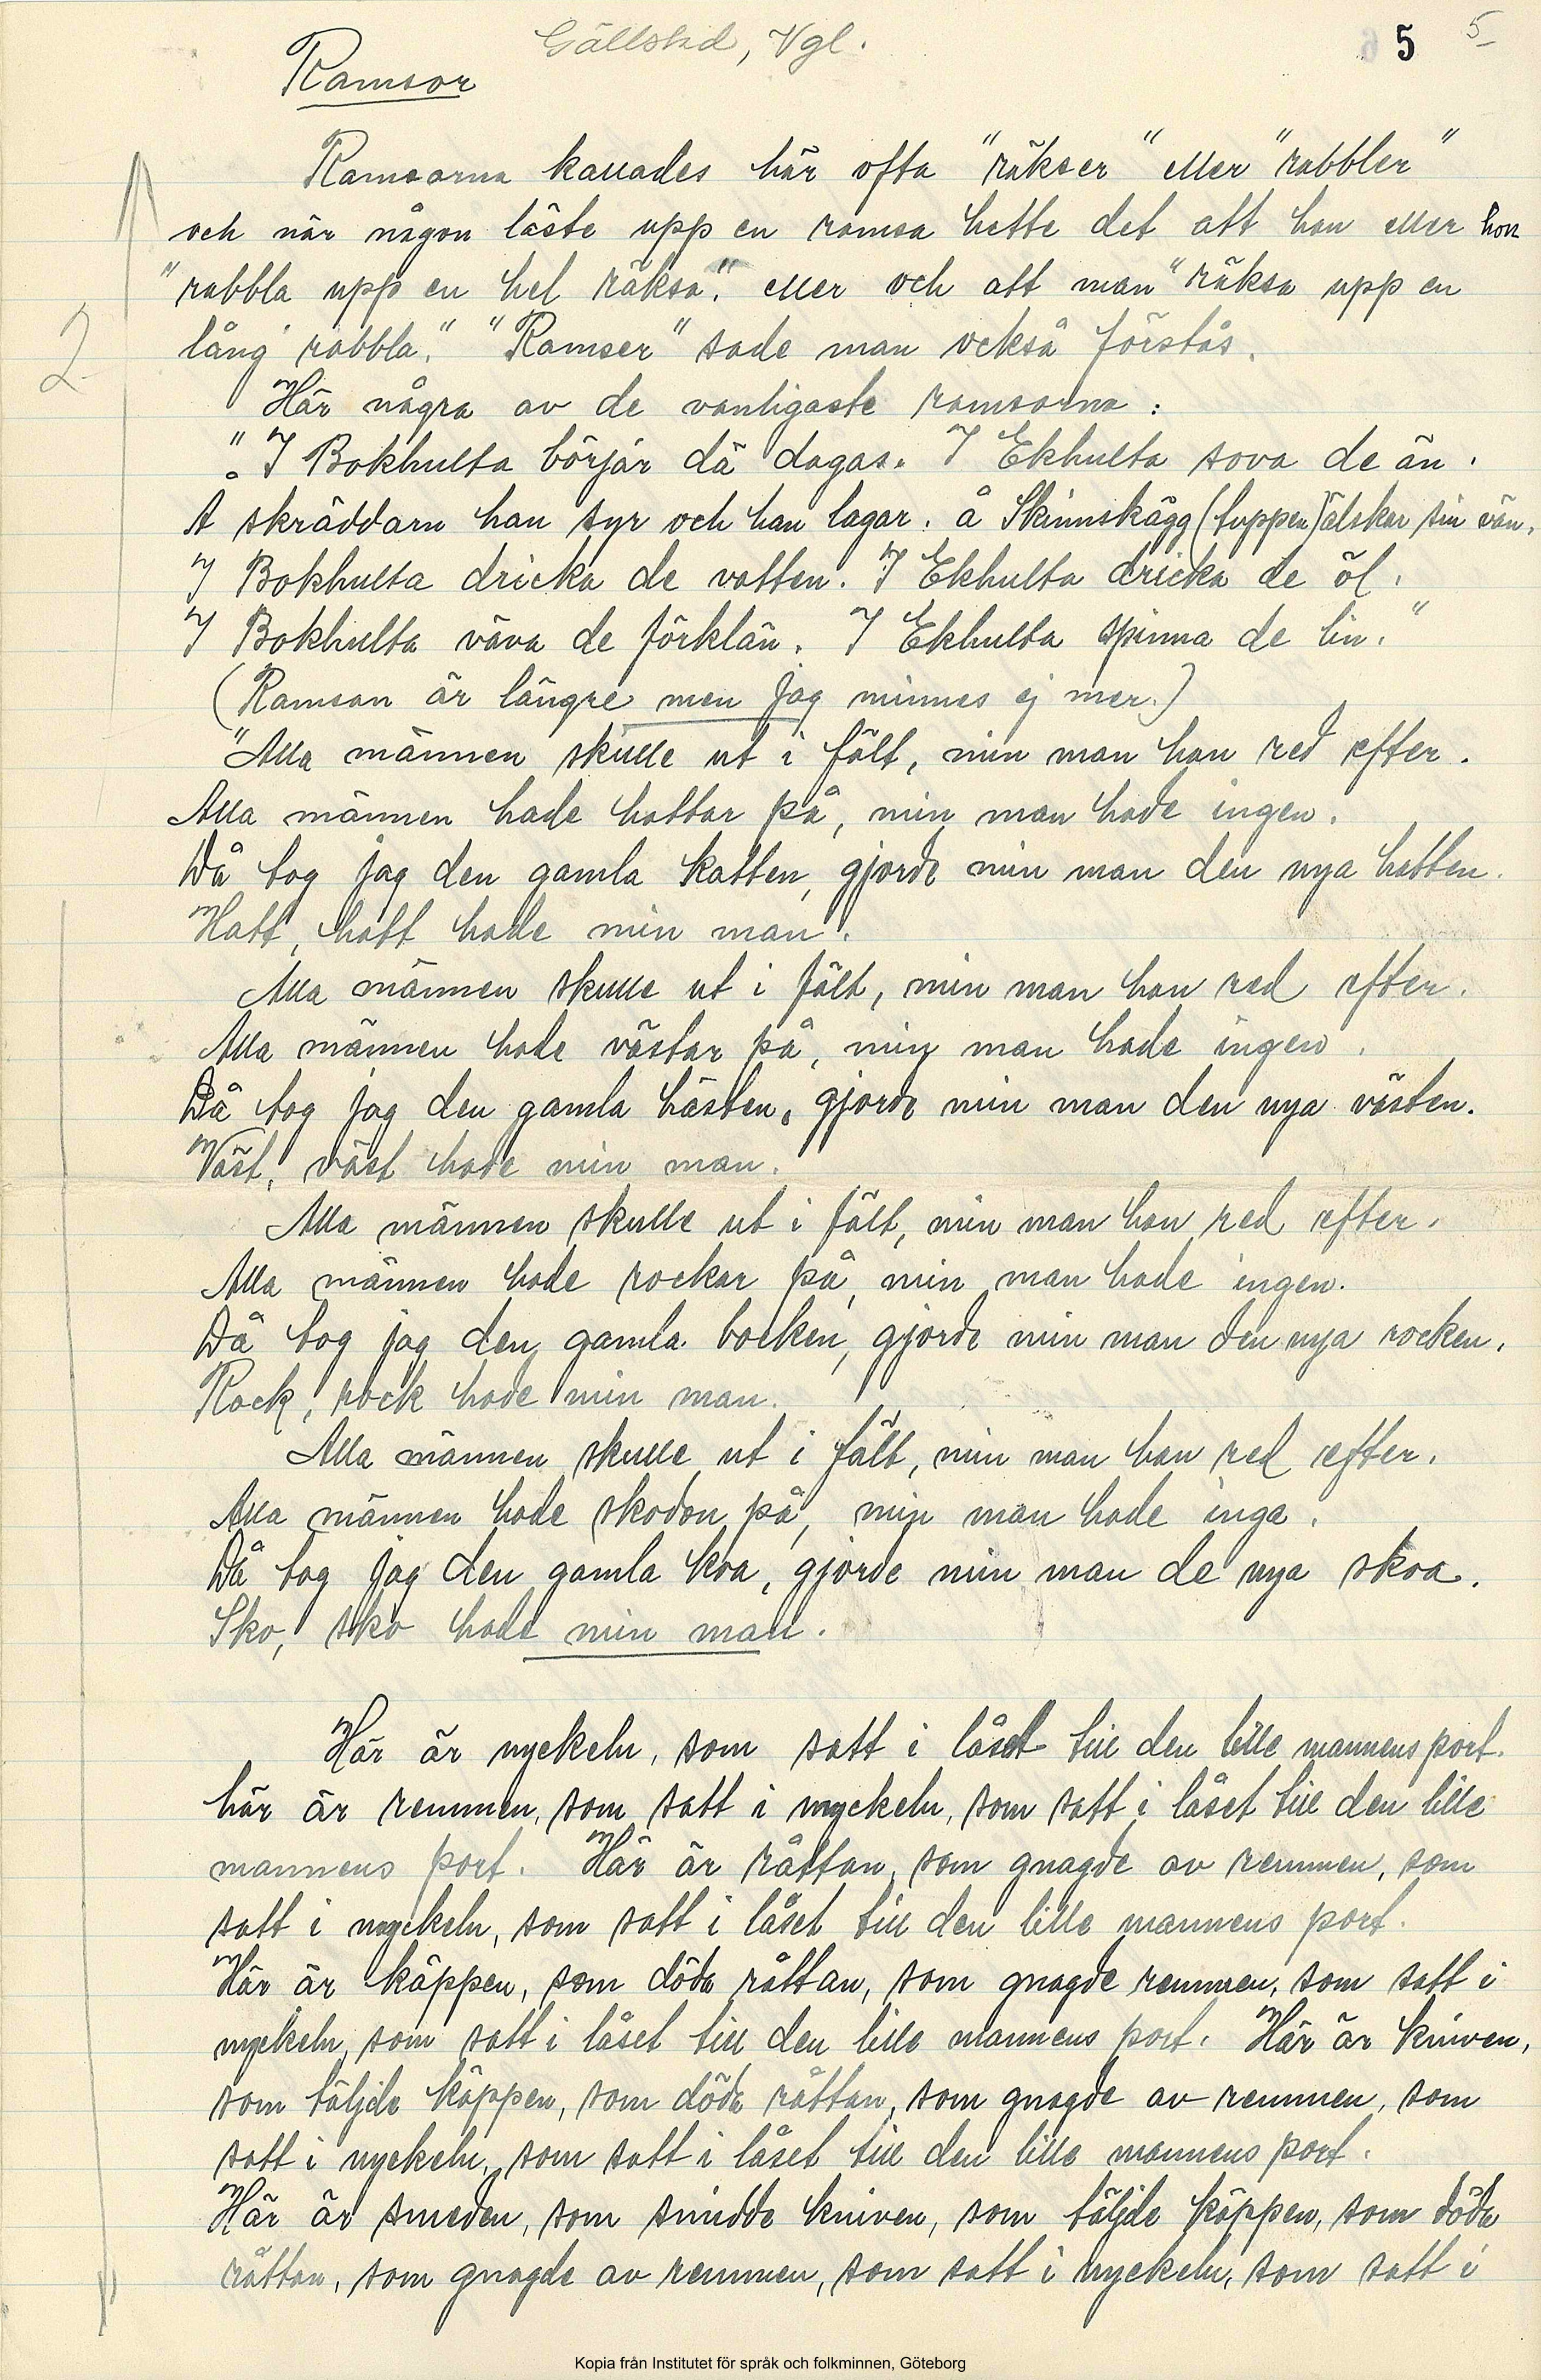 Gällstad, Vgl.
5 5
Ramsor
Ramsorna kallades här ofta "räkser" eller "rabbler"
och när någon läste upp en ramsa hette det att han eller hon
"rabbla upp en hel räksa". eller och att man "räksa upp en
lång rabbla." "Ramser" sade man också förstås.
2
Här några av de vanligaste ramsorna:
"I Bokhulta börjar dä dagas. I Ekhulta sova de än.
A skräddarn han syr och han lagar. å Skinnskägg (tuppen) älskar sin vän.
I Bokhulta dricka de vatten. I Ekhulta dricka de öl.
I Bokhulta väva de förklän. I Ekhulta spinna de lin."
(Ramsan är längre men jag minnes ej mer.)
"Alla männen skulle ut i fält, min man han red efter.
Alla männen hade hattar på, min man hade ingen.
Då tog jag den gamla katten, gjorde min man den nya hatten.
Hatt, hatt hade min man.
Alla männen skulle ut i fält, min man han red efter.
Alla männen hade västar på, min man hade ingen.
Då tog jag den gamla hästen, gjorde min man den nya västen.
Väst, väst hade min man.
Alla männen skulle ut i fält, min man han red efter.
Alla männen hade rockar på, min man hade ingen.
Då tog jag den gamla bocken, gjorde min man den nya rocken.
Rock, rock hade min man.
Alla männen skulle ut i fält, min man han red efter.
Alla männen hade skodon på, min man hade inga.
Då tog jag den gamla koa, gjorde min man de nya skoa.
Sko, sko hade min man.
Här är nyckeln, som satt i låset till den lille mannens port.
här är remmen, som satt i nyckeln, som satt i låset till den lille
mannens port. Här är råttan, som gnagde av remmen, som
satt i nyckeln, som satt i låset till den lille mannens port.
Här är käppen, som döda råttan, som gnagde remmen, som satt i
nyckeln, som satt i låset till den lille mannens port. Här är kniven,
som täljde käppen, som döda råttan, som gnagde av remmen, som
satt i nyckeln, som satt i låset till den lille mannens port.
Här är smeden, som smidde kniven, som täljde käppen, som döda
råttan, som gnagde av remmen, som satt i nyckeln, som satt i
Kopia från Institutet för språk och folkminnen, Göteborg